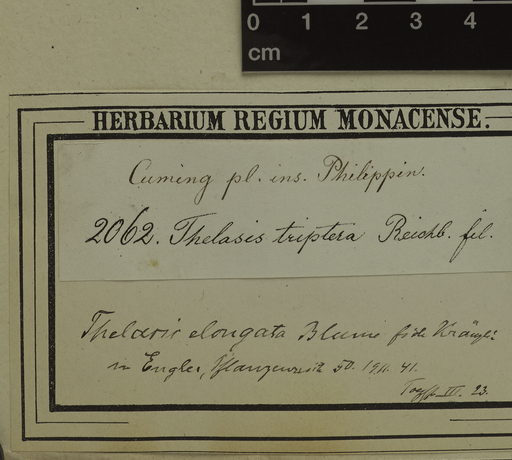 0 1 2 3 4
cm
HERBARIUM REGIUM MONACENSE.
Cuming pl. ins. Philippin.
2062. Thelasis triptera Reichb. fil.
Thelasis elongata Blume fide Kränzl:
in Engler, Pflanzenreich 50. 1911. 41.
III. 23.